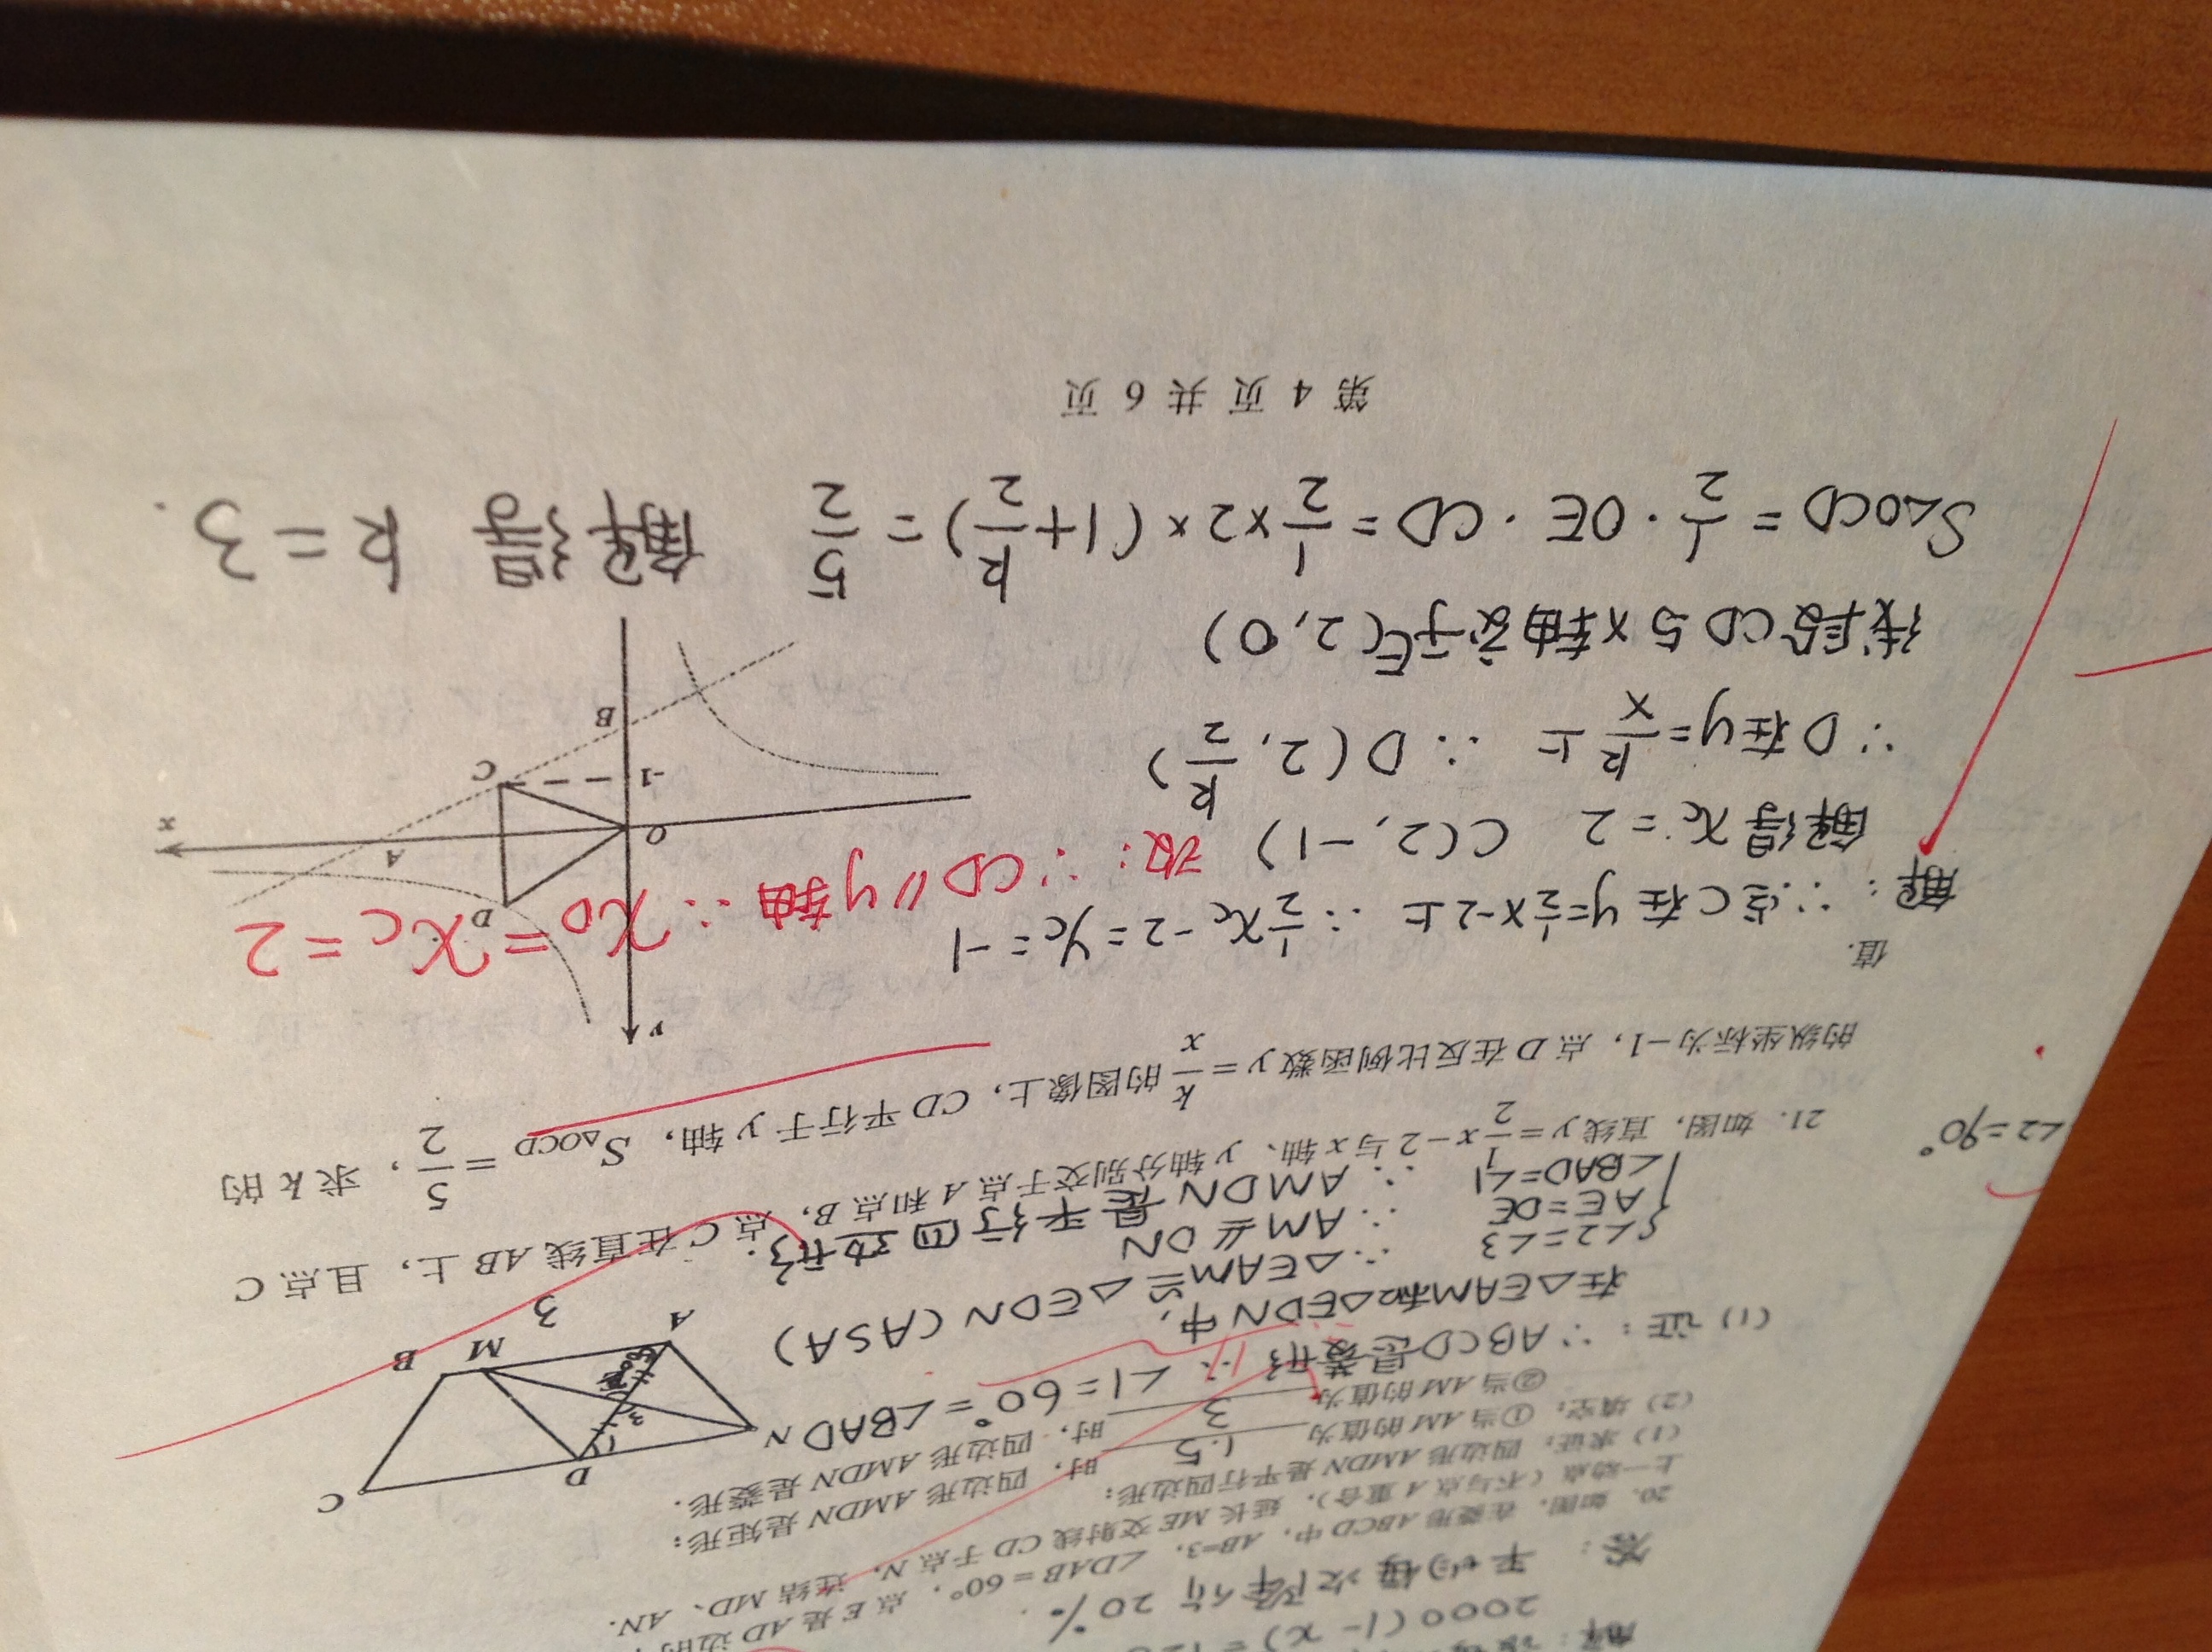 解：
2000(1-x)
答：平均每次降价 20%.
20. 如图，在菱形 ABCD 中，AB=3，∠DAB＝60°，点 E 是 AD 边的
上一动点（不与点 A 重合），延长 ME 交射线 CD 于点 N，连结 MD、AN.
（1）求证：四边形 AMDN 是平行四边形；
（2）填空：①当 AM 的值为 1.5 时，四边形 AMDN 是矩形；
②当 AM 的值为 3 时，四边形 AMDN 是菱形.
(1) 证：∵ABCD是菱形 ∴ ∠1=60°=∠BAD
在△EAM和△EDN中,
{∠2=∠3 ∴△EAM≌△EDN(ASA)
AE=DE ∴AM∥DN
∠BAD=∠1 ∴AMDN是平行四边形.
N D C
A M B
3
∠2=90°
21. 如图，直线 y=1/2x−2 与 x 轴、y 轴分别交于点 A 和点 B，点 C 在直线 AB 上，且点 C
的纵坐标为 −1，点 D 在反比例函数 y=k/x 的图像上，CD 平行于 y 轴，S△OCD=5/2，求 k 的
值.
解：∵点C在y=1/2x-2上 ∴1/2xc-2=yc=-1
解得xc=2 C(2,-1)
改：∵CD∥y轴∴xD=xC=2
∵D在y=k/x上 ∴D(2,k/2)
线段CD与x轴交于E(2,0)
S△OCD=1/2·OE·CD=1/2×2×(1+k/2)=5/2 解得 k=3.
y
D
O A x
-1 C
B
第 4 页 共 6 页